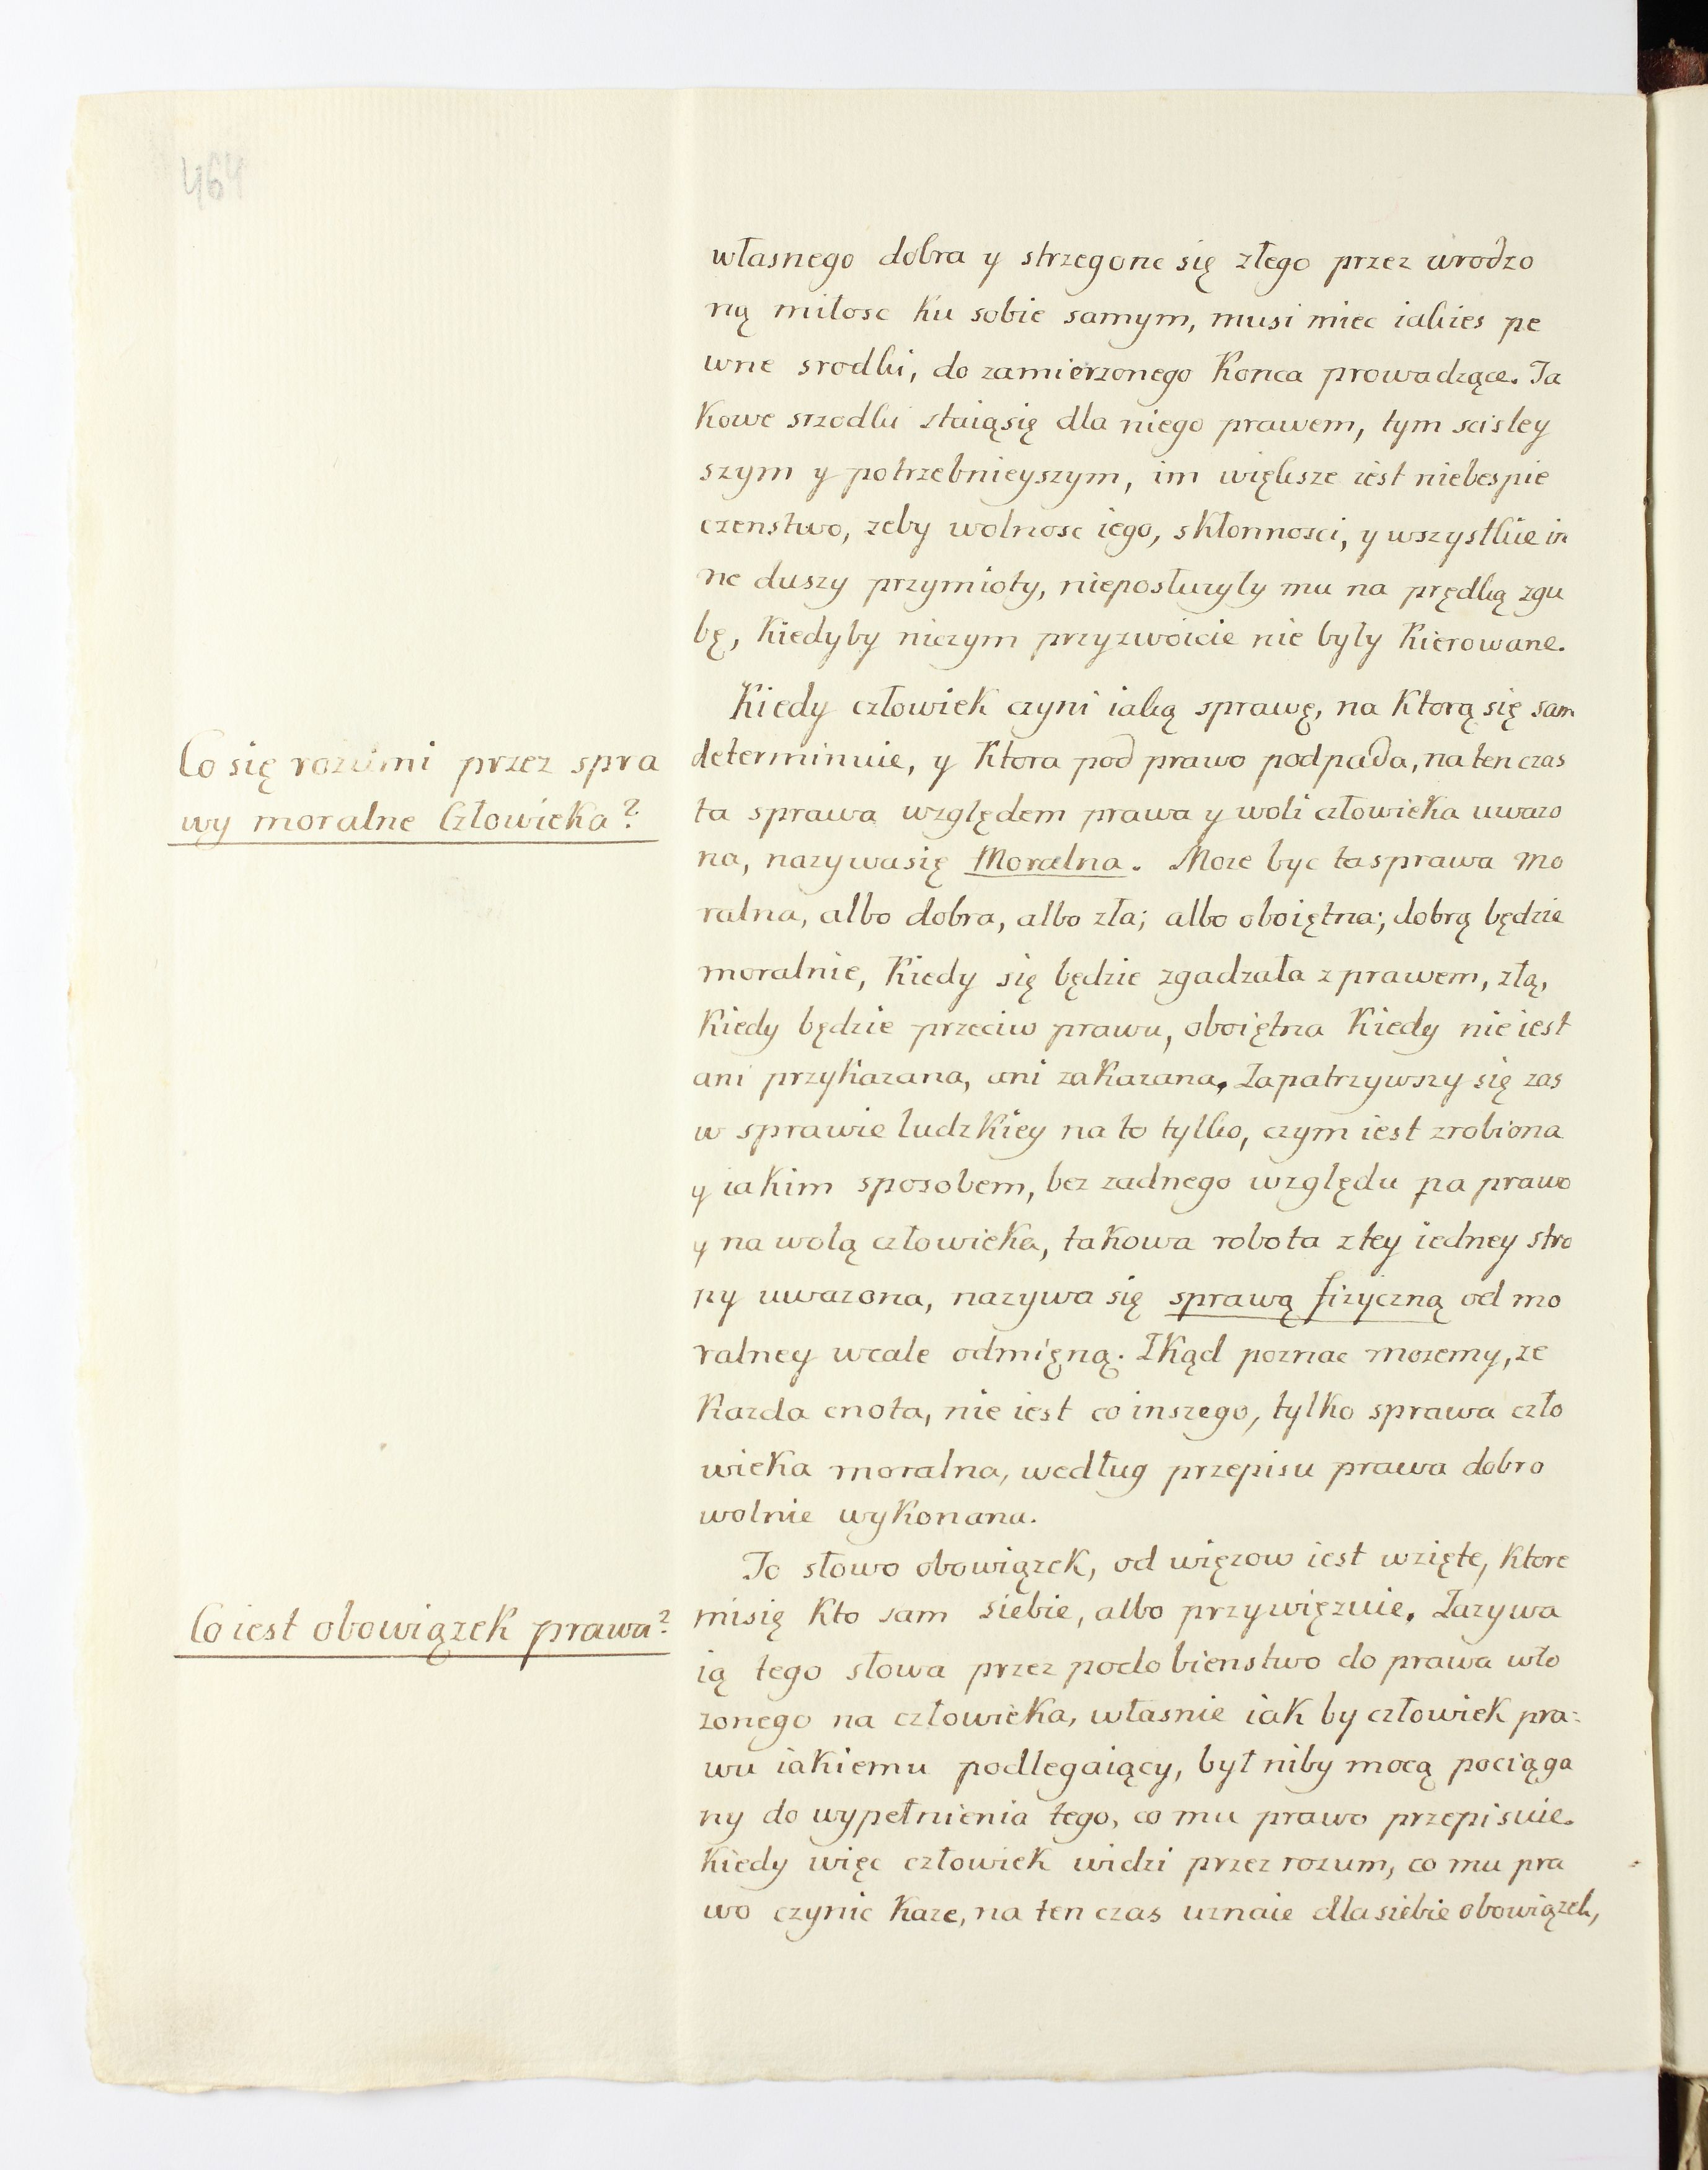 464
własnego dobra y strzegone się złego przez urodzo
ną miłosc ku sobie samym, musi miec iakies pe
wne srodki, do zamierzonego Konca prowadzące. Ta
Kowe srzodki staiąsię dla niego prawem, tym scisley
szym y potrzebnieyszym, im większe iest niebespie
czenstwo, zeby wolnosc iego, skłonnosci, y wszystkie in
ne duszy przymioty, nieposłuzyły mu na prędką zgu
bę, Kiedyby niczym przyzwoicie nie były Kierowane.
Kiedy człowiek czyni iaką sprawę, na Ktorą się sam
Co się rozumi przez spra
wy moralne Człowieka?
determinuie, y Ktora pod prawo podpada, na ten czas
ta sprawa względem prawa y woli człowieka uwazo
na, nazywasię Moralna. Moze byc ta sprawa mo
ralna, albo dobra, albo zła; albo oboiętna; dobrą będzie
moralnie, Kiedy się będzie zgadzała z prawem, złą,
Kiedy będzie przeciw prawu, oboiętna Kiedy nie iest
ani przykazana, ani zakazana. Zapatrzywszy się zas
w sprawie ludzkiey na to tylko, czym iest zrobiona
y iakim sposobem, bez zadnego względu na prawo
y na wolą człowieka, takowa robota z tey iedney stro
ny uwazona, nazywa się sprawą fizyczną od mo
ralney wcale odmięną. Zkąd poznac mozemy, ze
Kazda cnota, nie iest co inszego, tylko sprawa czło
wieka moralna, według przepisu prawa dobro
wolnie wykonana.
To słowo obowiązek, od więzow iest wzięte, Ktore
Co iest obowiązek prawa?
misię Kto sam siebie, albo przywięzuie. Zazywa
ią tego słowa przez podobienstwo do prawa wło
zonego na człowieka, własnie iak by człowiek pra:
wu iakiemu podlegaiący, był niby mocą pociąga
ny do wypełnienia tego, co mu prawo przepisuie.
Kiedy więc człowiek widzi przez rozum, co mu pra
wo czynic Kaze, na ten czas uznaie dla siebie obowiązek,